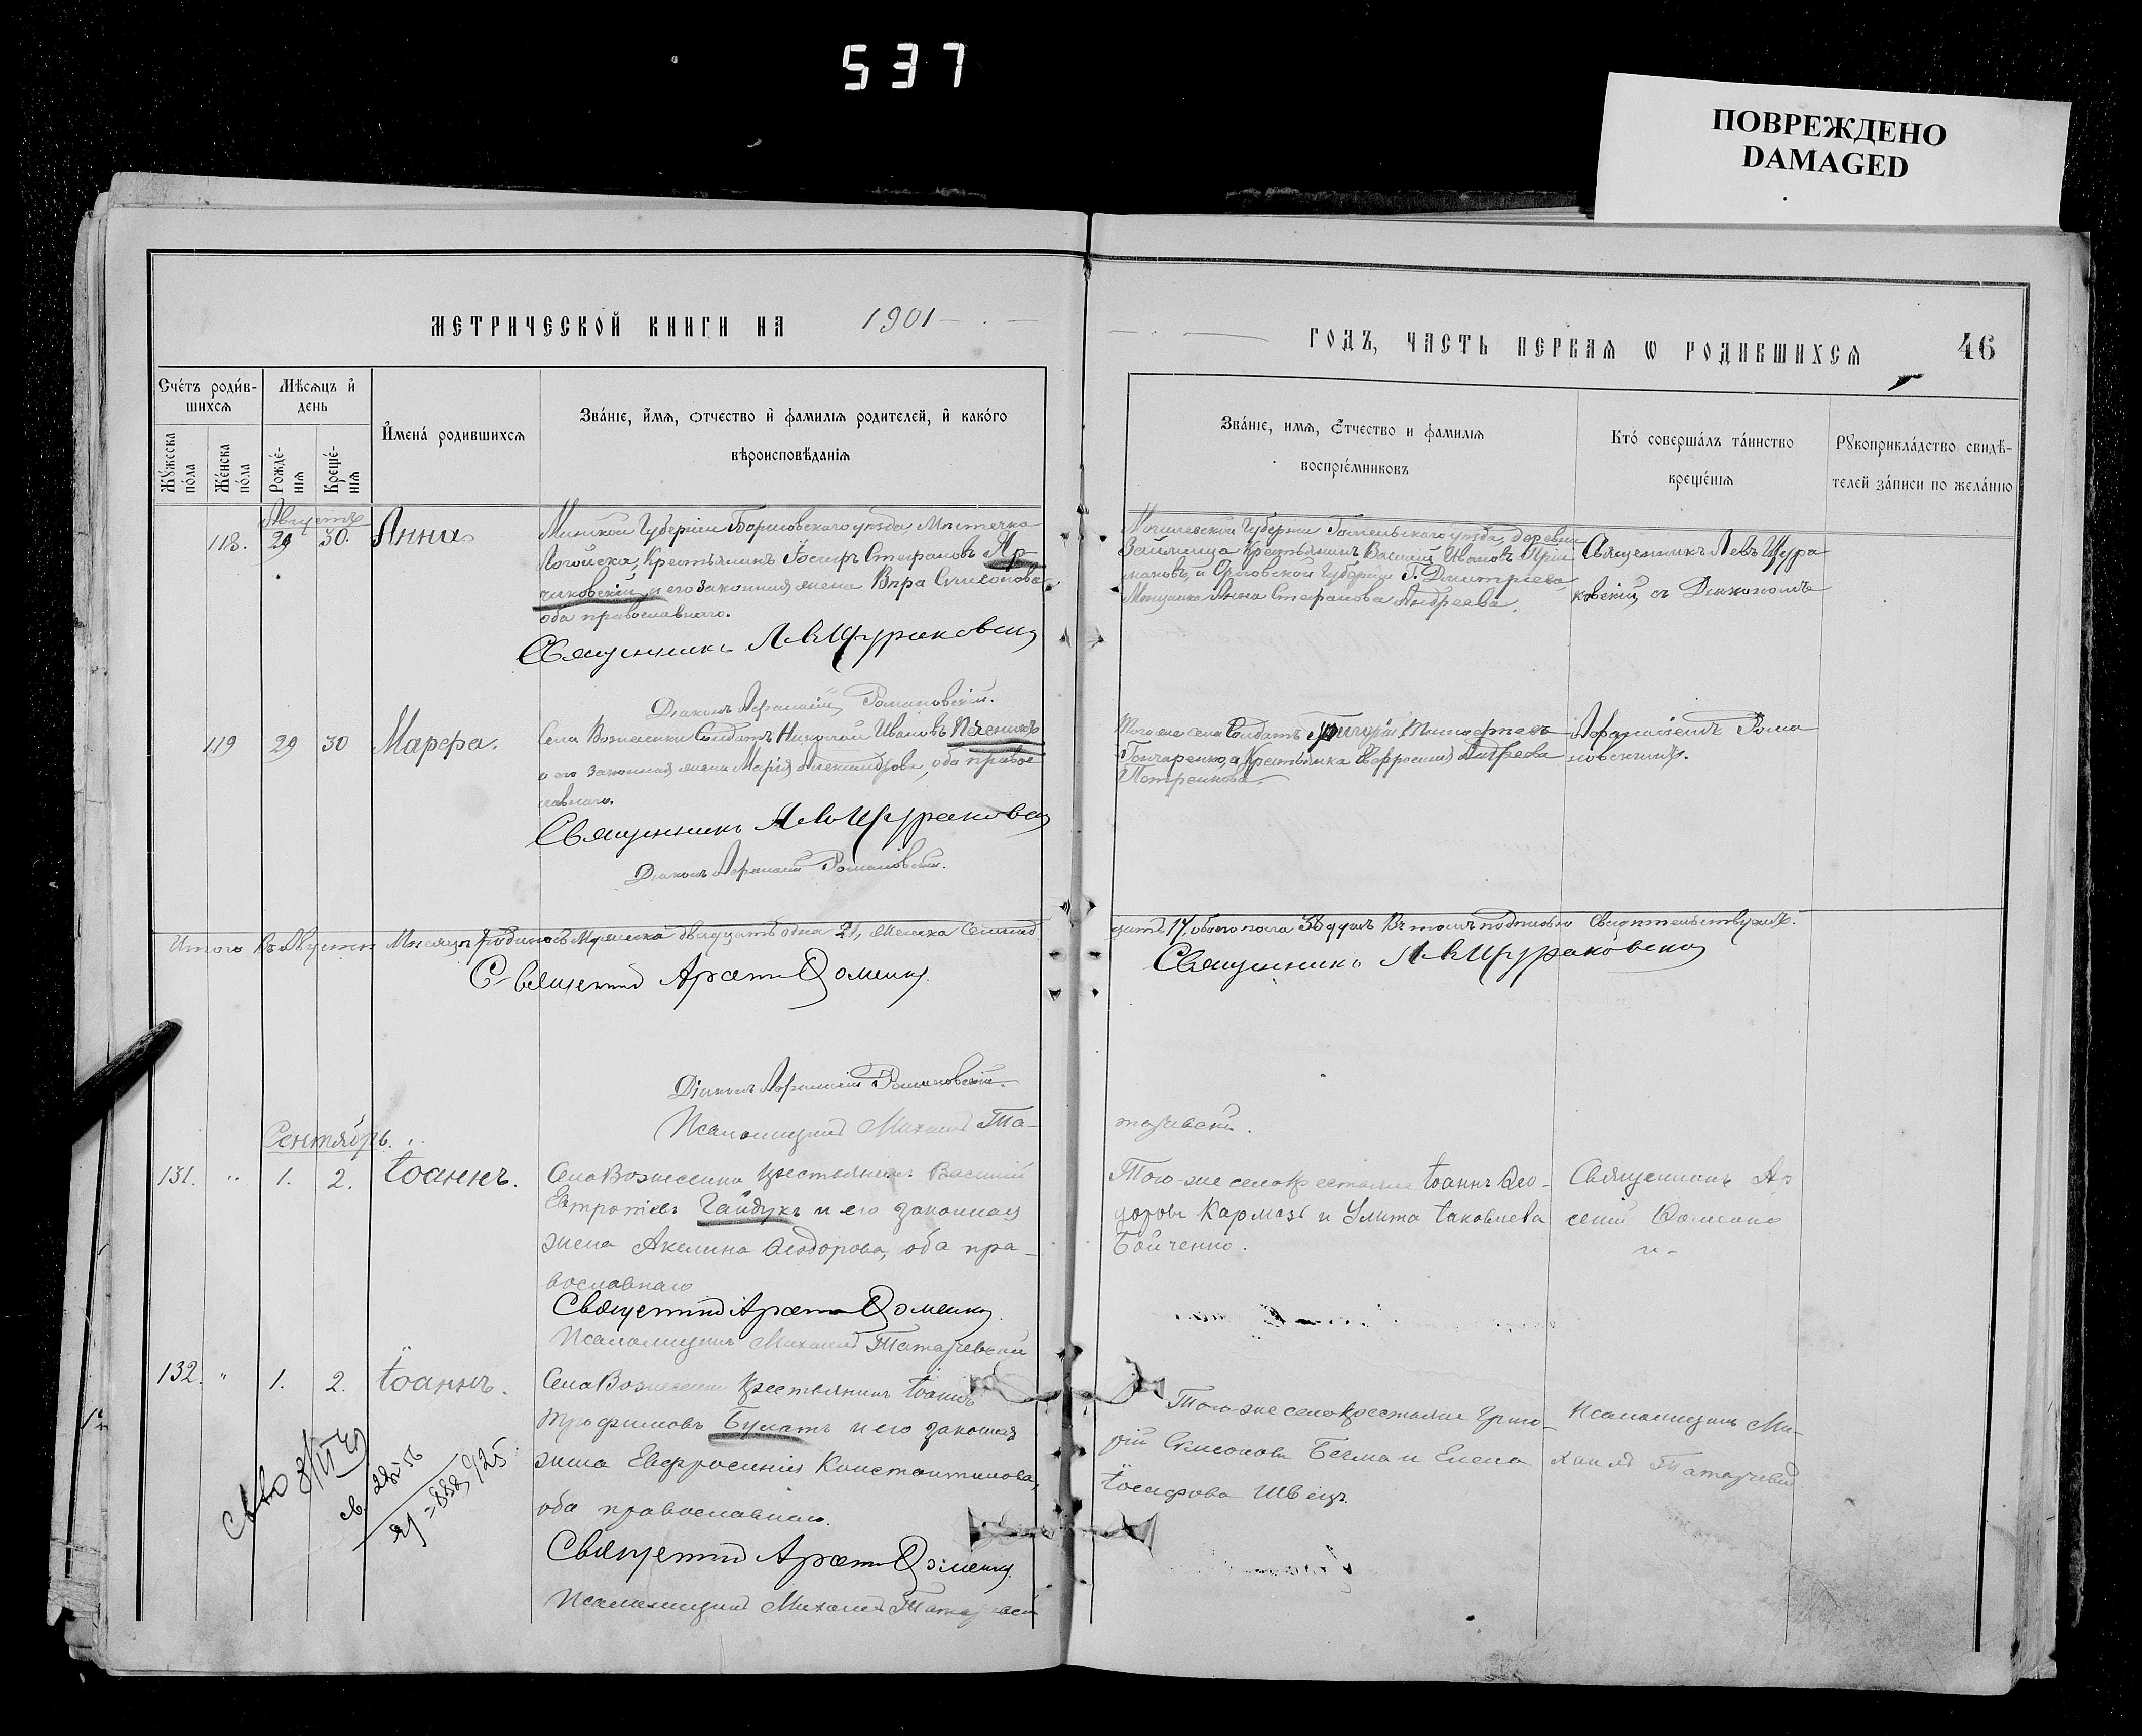 537
ПОВРЕЖДЕНО
DAMAGED
МЕТРИЧЕСКОЙ КНИГИ НА 1901
ГОДЪ, ЧАСТЬ ПЕРВАЯ Ѡ РОДИВШИХСЯ 46
Сче́тъ роди́в-
шихся
Мѣсяцъ и҆
день
Му́жеска
по́ла
Же́нска
по́ла
Рожде́-
нія
Креще́-
нія
И҆мена́ родившихся
Зва́ніе, и҆́мя, отчество и҆ фамилія родителей, и҆ како́го
вѣроисповѣ́данія
Зва́ніе, имя, ѻ҆́тчество и фамилія
воспріе́мниковъ
Кто́ совершáлъ тáинство
креще́нія
Рꙋкоприклáдство свидѣ́-
телей зáписи по желáнію
Августъ
118. 29 30. Анна
Минской Губерніи Борисовскаго уѣзда, Мѣстечка
Логойска, Крестьянинъ Іосифъ Стефановъ Яр-
чиковскій и его законная жена Вѣра Симеонова
оба православнаго.
Священникъ Левъ Щураковскій
Діаконъ Афанасій Романовскій.
Могилевской Губерніи Гомельскаго уѣзда, деревни
крестьянинъ Василій Ивановъ При-
маковъ, и Орловской Губерніи Г. Дмитріева
Мѣщанка Анна Стефанова Андреева.
Священникъ Левъ Щура
ковскій, съ Діакономъ
119 29 30 Марѳа.
Села Вознесенки Солдатъ Николай Ивановъ
и его законная жена Марія Александрова, оба правос
лавнаго.
Священникъ Левъ Щураковскій
Діаконъ Афанасій Романовскій.
Того же села Солдатъ Григорій Тимофеевъ
Гончаренко, и Крестьянка Евфросинія Андреева
Петренкова.
Афанасіемъ Рома
новскимъ.
Итого въ Августѣ Мѣсяцѣ родилось Мужеска двадцать одна 21, Женска Семнад
цать 17, обоего пола 38 душъ Въ томъ подписью Свидетельствуемъ.
Священникъ Арсеній Ѳоменко
Священникъ Левъ Щураковскій
Діаконъ Афанасій Романовскій.
Псаломщикъ Михаилъ Та-
Сентябрь.
131. " 1. 2. Іоаннъ.
Села Вознесенки крестьянинъ Василій
Евтропіевъ Гайдукъ и его законная
жена Акилина Ѳеодорова, оба пра-
вославнаго
Священникъ Арсеній Ѳоменко
Псаломщикъ Михаилъ
Того-же села крестьяне Іоаннъ Ѳео-
доровъ Кармазь и Улита Іаковлева
Бойченко.
Священникъ Ар
сеній Ѳоменко
132. " 1. 2. Іоаннъ.
Села Вознесенки крестьянинъ Іоаннъ
Трофимовъ Булатъ и его законная
жена Евфросинія Константинова,
оба православнаго.
Священникъ Арсеній Ѳоменко
Псаломщикъ Михаилъ
Того-же села крестьяне Григо-
рій Симеоновъ Бегма и Елена
Іосифова Швецъ.
Псаломщикъ Ми-
хаилъ